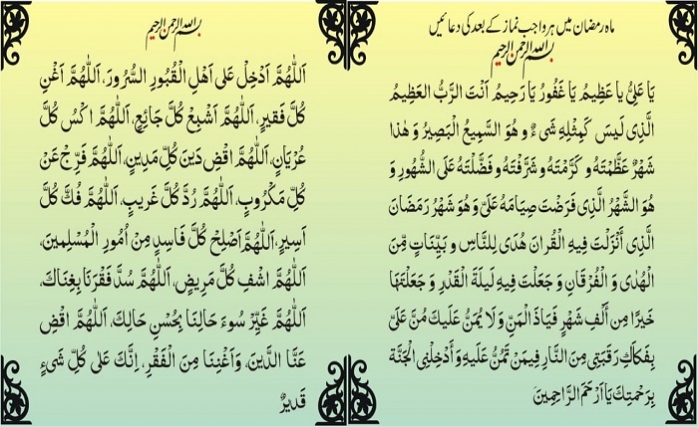 ماہ رمضان میں ہر واجب نماز کے بعد کی دعائیں
بِسْمِ اللهِ الرَّحْمٰنِ الرَّحِيْمِ
يَا عَلِيُّ يَا عَظِيْمُ يَا غَفُوْرُ يَا رَحِيْمُ اَنْتَ الرَّبُّ العَظِيْمُ
الَّذِىْ لَيْسَ كَمِثْلِهِ شَىْءٌ وَ هُوَ السَّمِيْعُ الْبَصِيْرُ وَ هٰذَا
شَهْرٌ عَظَّمْتَهُ وَ كَرَّمْتَهُ وَ شَرَّفْتَهُ وَ فَضَّلْتَهُ عَلَى الشُّهُوْرِ وَ
هُوَ الشَّهْرُ الَّذِىْ فَرَضْتَ صِيَامَهُ عَلَىَّ وَ هُوَ شَهْرُ رَمَضَانَ
الَّذِىْ اَنْزَلْتَ فِيهِ الْقُرانَ هُدًى لِلنَّاسِ وَ بَيِّنَاتٍ مِّنَ
الْهُدٰى وَ الْفُرْقَانِ وَ جَعَلْتَ فِيهِ لَيلَةَ الْقَدْرِ وَ جَعَلْتَهَا
خَيرًا مِن أَلفِ شَهْرٍ فَيَاذَ الْمَنِّ وَ لَا يُمَنُّ عَلَيكَ مُنَّ عَلَىَّ
بِفَكَاكِ رَقَبَتِى مِنَ النَّارِ فِيمَن تَمُنُّ عَلَيهِ وَ أَدْخِلْنِى الْجَنَّةَ
بِرَحْمَتِكَ يَا اَرْحَمَ الرَّاحِمِينَ
بِسْمِ اللهِ الرَّحْمٰنِ الرَّحِيْمِ
اَللّٰهُمَّ اَدْخِلْ عَلٰى اَهْلِ الْقُبُورِ السُّرُورَ، اَللّٰهُمَّ اَغْنِ
كُلَّ فَقِيرٍ، اَللّٰهُمَّ اَشْبِعْ كُلَّ جَائِعٍ، اَللّٰهُمَّ اكْسُ كُلَّ
عُرْيَانٍ، اَللّٰهُمَّ اقْضِ دَينَ كُلِّ مَدِينٍ، اَللّٰهُمَّ فَرِّجْ عَنْ
كُلِّ مَكْرُوبٍ، اَللّٰهُمَّ رُدَّ كُلَّ غَرِيبٍ، اَللّٰهُمَّ فُكَّ كُلَّ
اَسِيرٍ، اَللّٰهُمَّ اَصْلِحْ كُلَّ فَاسِدٍ مِنْ اُمُورِ الْمُسْلِمِينَ،
اَللّٰهُمَّ اشْفِ كُلَّ مَرِيضٍ، اَللّٰهُمَّ سُدَّ فَقْرَنَا بِغِنَاكَ،
اَللّٰهُمَّ غَيِّرْ سُوءَ حَالِنَا بِحُسْنِ حَالِكَ، اَللّٰهُمَّ اقْضِ
عَنَّا الدَّينَ، وَاَغْنِنَا مِنَ الْفَقْرِ، اِنَّكَ عَلٰى كُلِّ شَىْءٍ
قَدِيرٌ